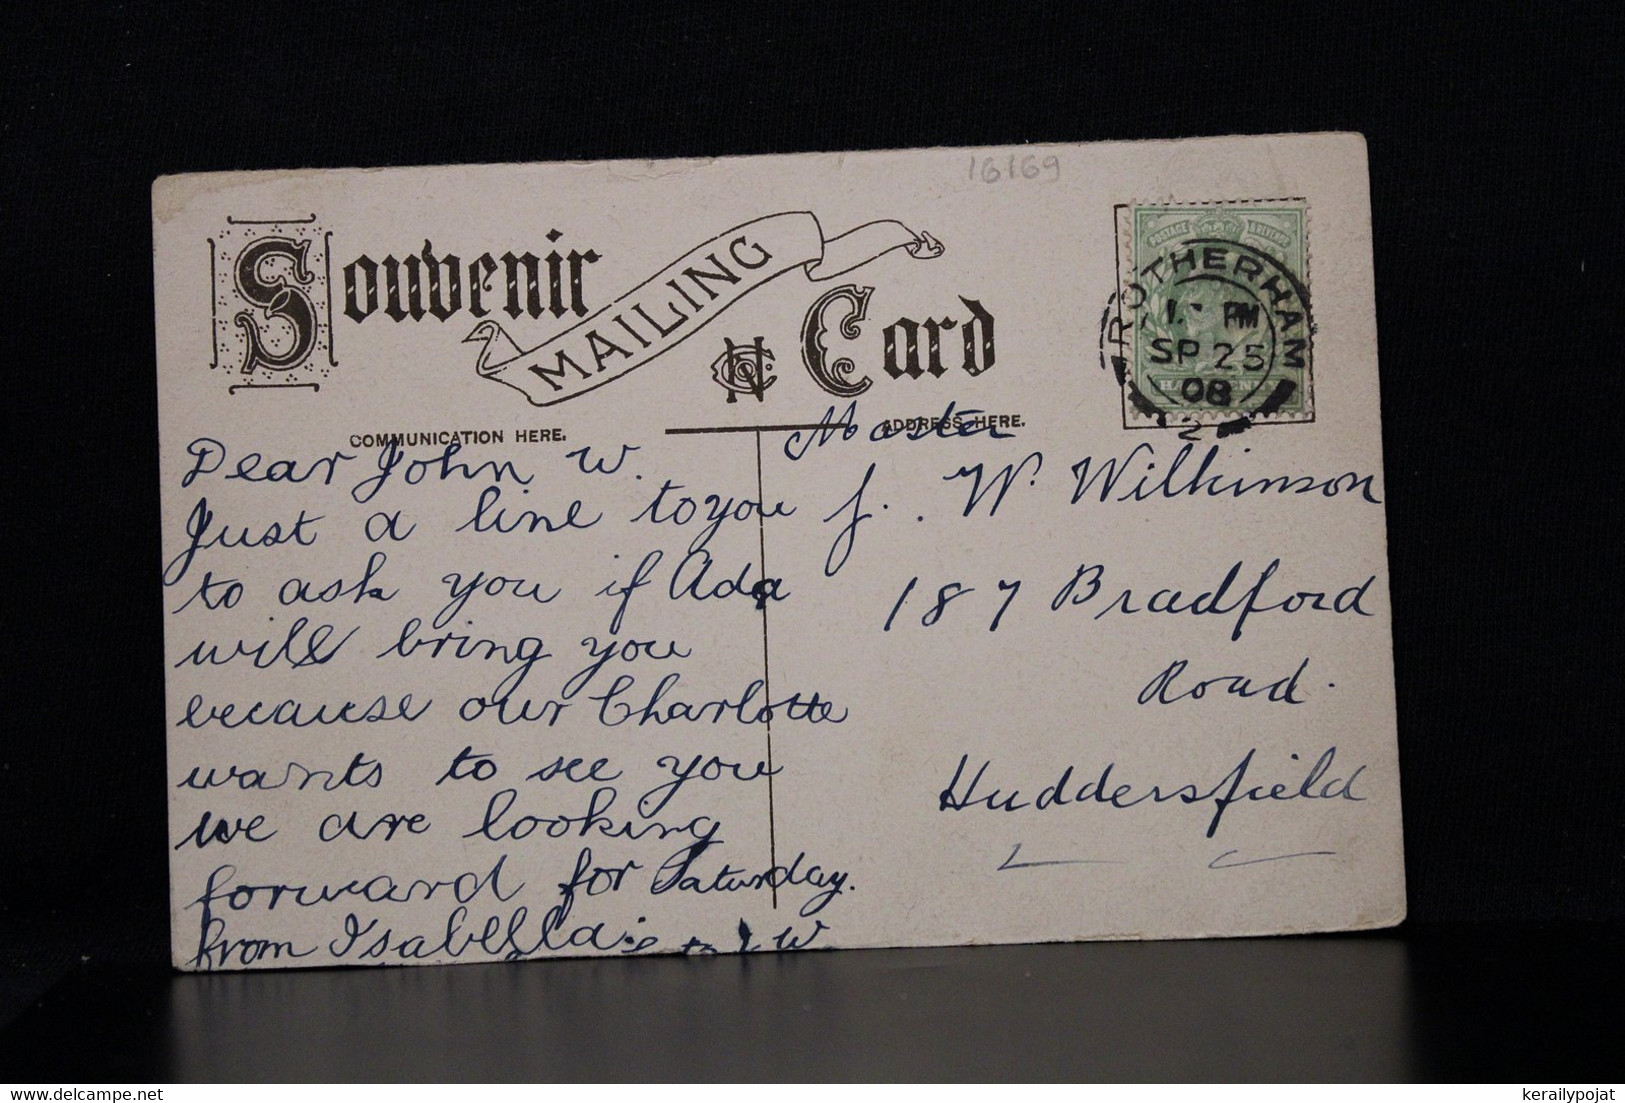 16169
Souvenir
MAILING
Card
POSTAGE & REVENUE
ROTHERHAM
PM
SP 25
08
2
HALFPENNY
COMMUNICATION HERE.
ADDRESS HERE.
Dear John W.
Just a line to you
to ask you if Ada
will bring you
because our Charlotte
wants to see you
we are looking
forward for Saturday.
from Isabella to J W
Master
J. W. Wilkinson
187 Bradford
Road.
Huddersfield
kerailypojat